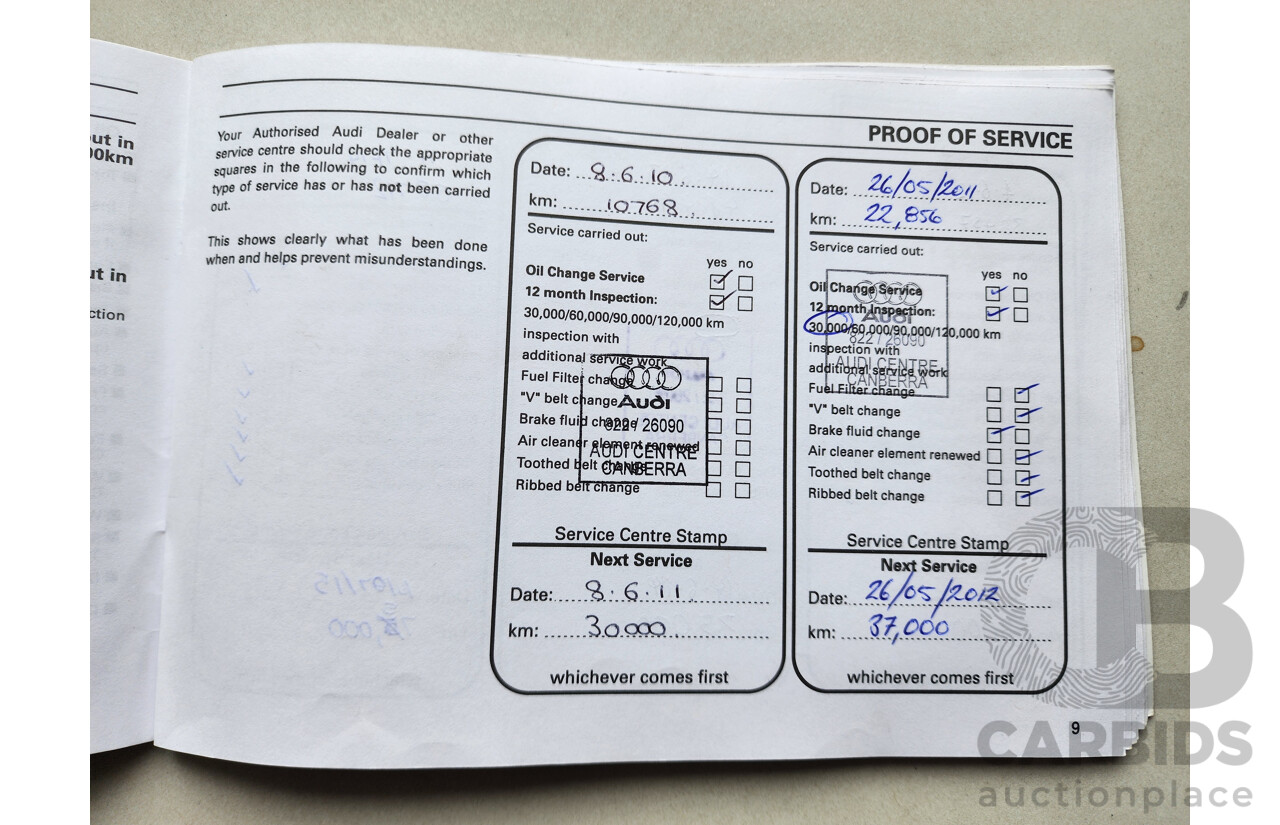 ut in
00km
ut in
ction
Your Authorised Audi Dealer or other
service centre should check the appropriate
squares in the following to confirm which
type of service has or has not been carried
out.
This shows clearly what has been done
when and helps prevent misunderstandings.
PROOF OF SERVICE
Date: 8.6.10
km: 10768
Service carried out:
yes no
Oil Change Service
12 month Inspection:
30,000/60,000/90,000/120,000 km
inspection with
additional service work
Fuel Filter change
"V" belt change
Brake fluid change
Air cleaner element renewed
Toothed belt change
Ribbed belt change
Audi
822 / 26090
AUDI CENTRE
CANBERRA
Service Centre Stamp
Next Service
Date: 8.6.11
km: 30000
whichever comes first
Date: 26/05/2011
km: 22,856
Service carried out:
yes no
Oil Change Service
12 month Inspection:
30,000/60,000/90,000/120,000 km
inspection with
additional service work
Fuel Filter change
"V" belt change
Brake fluid change
Air cleaner element renewed
Toothed belt change
Ribbed belt change
Audi
822 / 26090
AUDI CENTRE
CANBERRA
Service Centre Stamp
Next Service
Date: 26/05/2012
km: 37,000
whichever comes first
9
CARBIDS
auctionplace